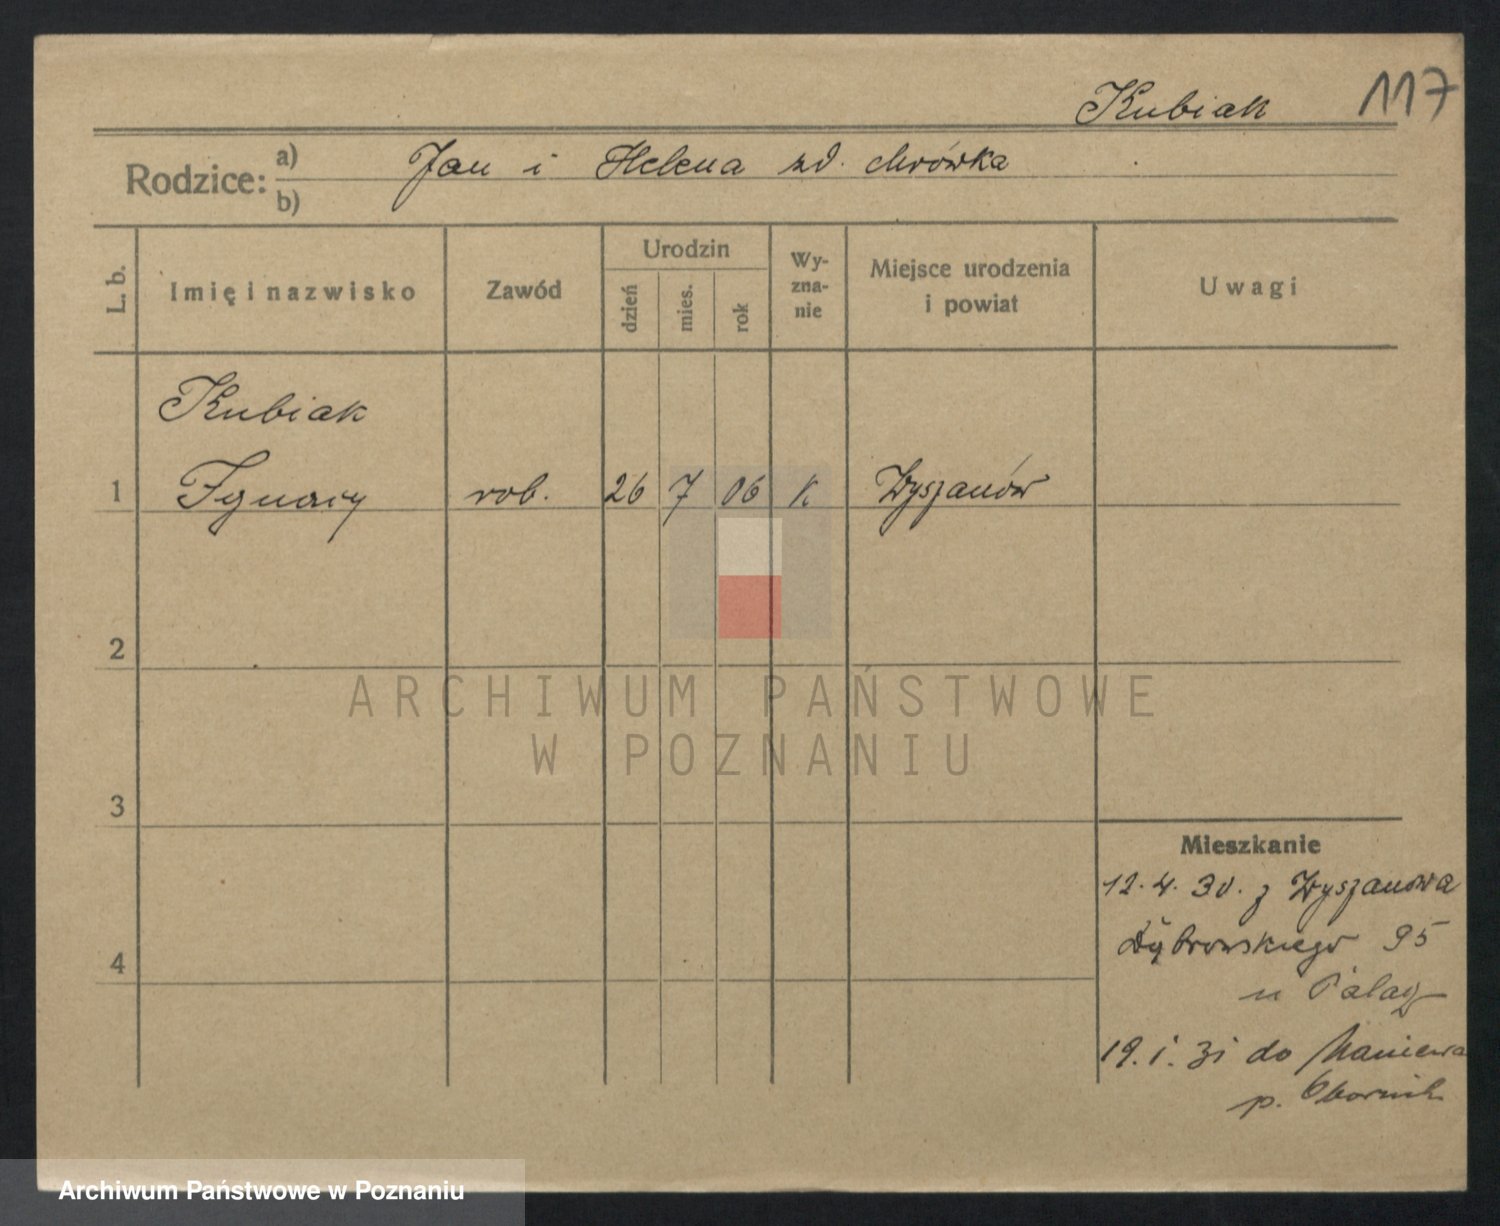 Kubiak 117
Rodzice: a) Jan i Helena zd. Mrówka
b)
L. b. Imię i nazwisko Zawód Urodzin dzień mies. rok Wy-zna-nie Miejsce urodzenia i powiat Uwagi
Kubiak
1 Ignacy rob. 26 7 06 K Wyszanów
2
ARCHIWUM PAŃSTWOWE
W POZNANIU
3
Mieszkanie
12. 4. 30. z Wyszanowa
Dąbrowskiego 95
4
u
19. 1. 31 do Maniewa
p. Obornik
Archiwum Państwowe w Poznaniu